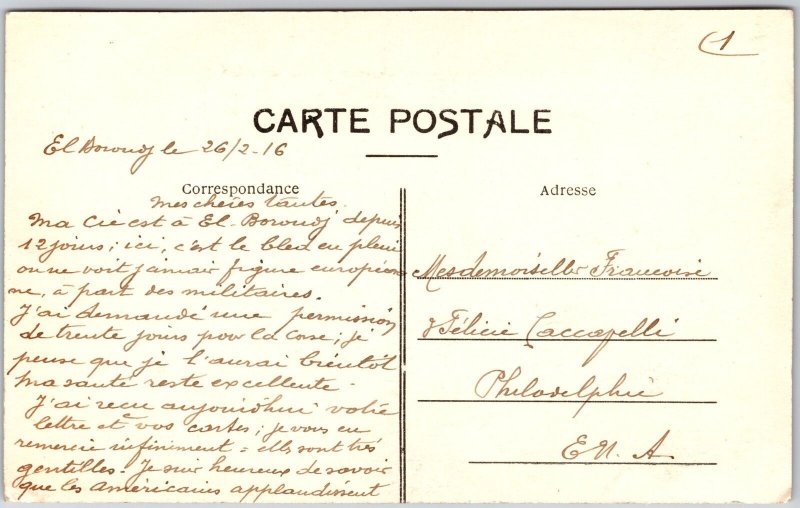 1
CARTE POSTALE
El Boroudj le 26/2-16
Correspondance
Mes chères tantes.
Ma Cie est à El-Boroudj depuis
12 jours; ici, c'est le bled en plein
on ne voit jamais figure européen
ne, à part des militaires.
J'ai demandé une permission
de trente jours pour la Corse; je
pense que je l'aurai bientôt
Ma santé reste excellente -
J'ai reçu aujourd'hui votre
lettre et vos cartes; je vous en
remercie infiniment = elles sont très
gentilles. Je suis heureux de savoir
que les américains applaudissent
Adresse
Mesdemoiselles Francoise
& Félicie Caccapelli
Philadelphie
E.U.A.